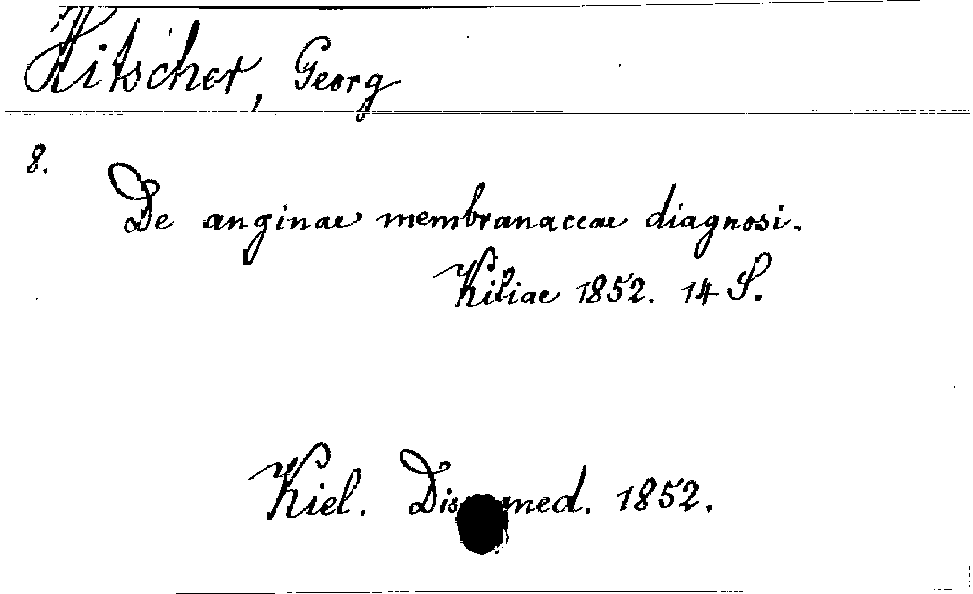 Kitscher, Georg
8.
De anginae membranaceae diagnosi.
Kiliae 1852. 14 S.
Kiel. Dis med. 1852.